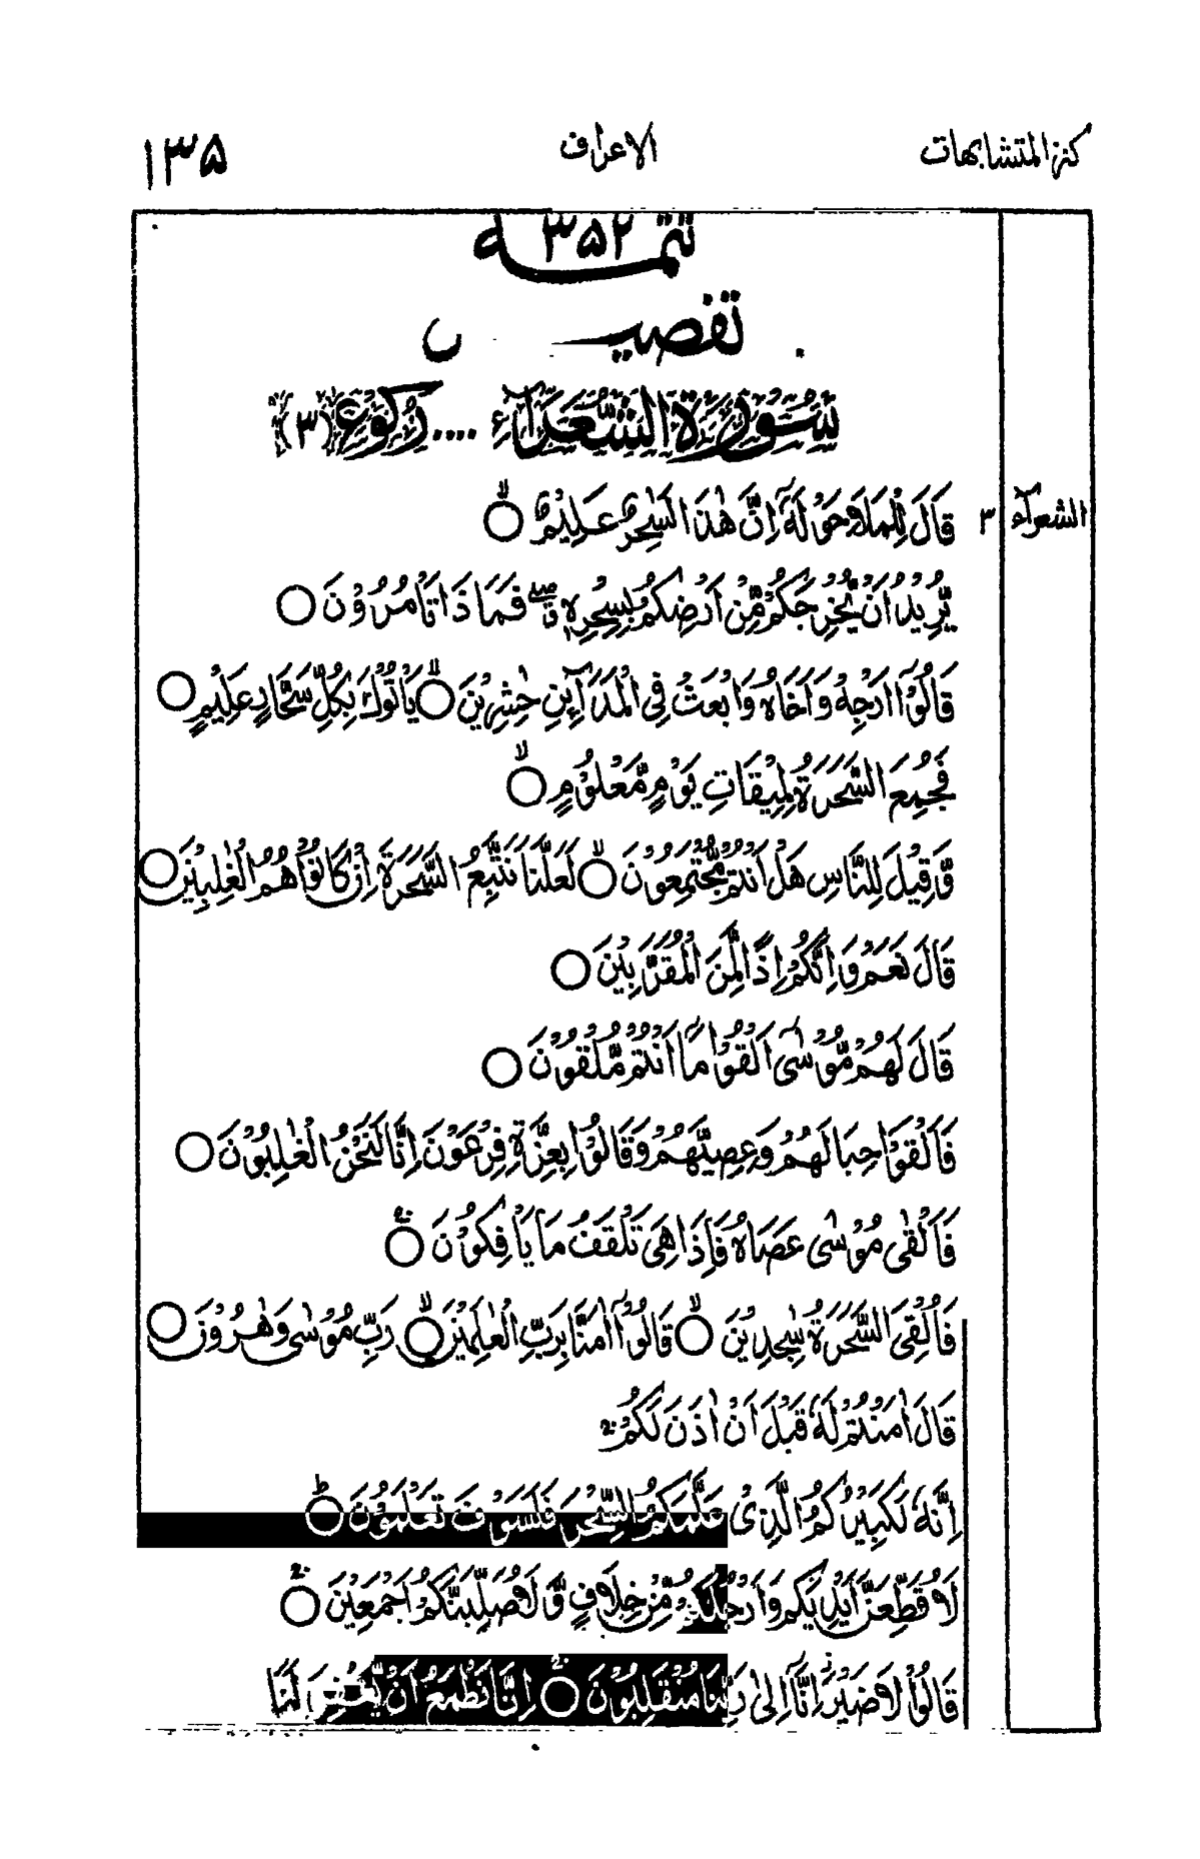 كنز المتشابهات الاعراف ١٣٥
تتمـــه ٣٥٢
تفصيـــــل
سُوْرَةُ الشُّعَرَآءِ .... رُكُوْع (٣)
الشعرآء ٣ قَالَ لِلْمَلَاِ حَوْلَهٗٓ اِنَّ هٰذَا لَسٰحِرٌ عَلِيْمٌ ۙ○
يُّرِيْدُ اَنْ يُّخْرِجَكُمْ مِّنْ اَرْضِكُمْ بِسِحْرِهٖ ۖق فَمَاذَا تَاْمُرُوْنَ ○
قَالُوْٓا اَرْجِهْ وَاَخَاهُ وَابْعَثْ فِي الْمَدَآئِنِ حٰشِرِيْنَ ۙ○ يَاْتُوْكَ بِكُلِّ سَحَّارٍ عَلِيْمٍ ○
فَجُمِعَ السَّحَرَةُ لِمِيْقَاتِ يَوْمٍ مَّعْلُوْمٍ ۙ○
وَّقِيْلَ لِلنَّاسِ هَلْ اَنْتُمْ مُّجْتَمِعُوْنَ ۙ○ لَعَلَّنَا نَتَّبِعُ السَّحَرَةَ اِنْ كَانُوْا هُمُ الْغٰلِبِيْنَ ○
قَالَ نَعَمْ وَاِنَّكُمْ اِذًا لَّمِنَ الْمُقَرَّبِيْنَ ○
قَالَ لَهُمْ مُّوْسٰٓى اَلْقُوْا مَآ اَنْتُمْ مُّلْقُوْنَ ○
فَاَلْقَوْا حِبَالَهُمْ وَعِصِيَّهُمْ وَقَالُوْا بِعِزَّةِ فِرْعَوْنَ اِنَّا لَنَحْنُ الْغٰلِبُوْنَ ○
فَاَلْقٰى مُوْسٰى عَصَاهُ فَاِذَا هِيَ تَلْقَفُ مَا يَاْفِكُوْنَ ○
فَاُلْقِيَ السَّحَرَةُ سٰجِدِيْنَ ۙ○ قَالُوْٓا اٰمَنَّا بِرَبِّ الْعٰلَمِيْنَ ۙ○ رَبِّ مُوْسٰى وَهٰرُوْنَ ○
قَالَ اٰمَنْتُمْ لَهٗ قَبْلَ اَنْ اٰذَنَ لَكُمْ ۚ
اِنَّهٗ لَكَبِيْرُكُمُ الَّذِيْ عَلَّمَكُمُ السِّحْرَ فَلَسَوْفَ تَعْلَمُوْنَ ؕ○
لَاُقَطِّعَنَّ اَيْدِيَكُمْ وَاَرْجُلَكُمْ مِّنْ خِلَافٍ وَّلَاُصَلِّبَنَّكُمْ اَجْمَعِيْنَ ۚ○
قَالُوْا لَا ضَيْرَ اِنَّآ اِلٰى رَبِّنَا مُنْقَلِبُوْنَ ۚ○ اِنَّا نَطْمَعُ اَنْ يَّغْفِرَ لَنَا